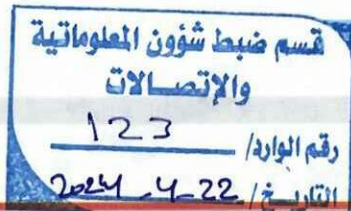 قسم ضبط شؤون المعلوماتية
والإتصالات
رقم الوارد/ 123
التاريخ/ 2024-4-22